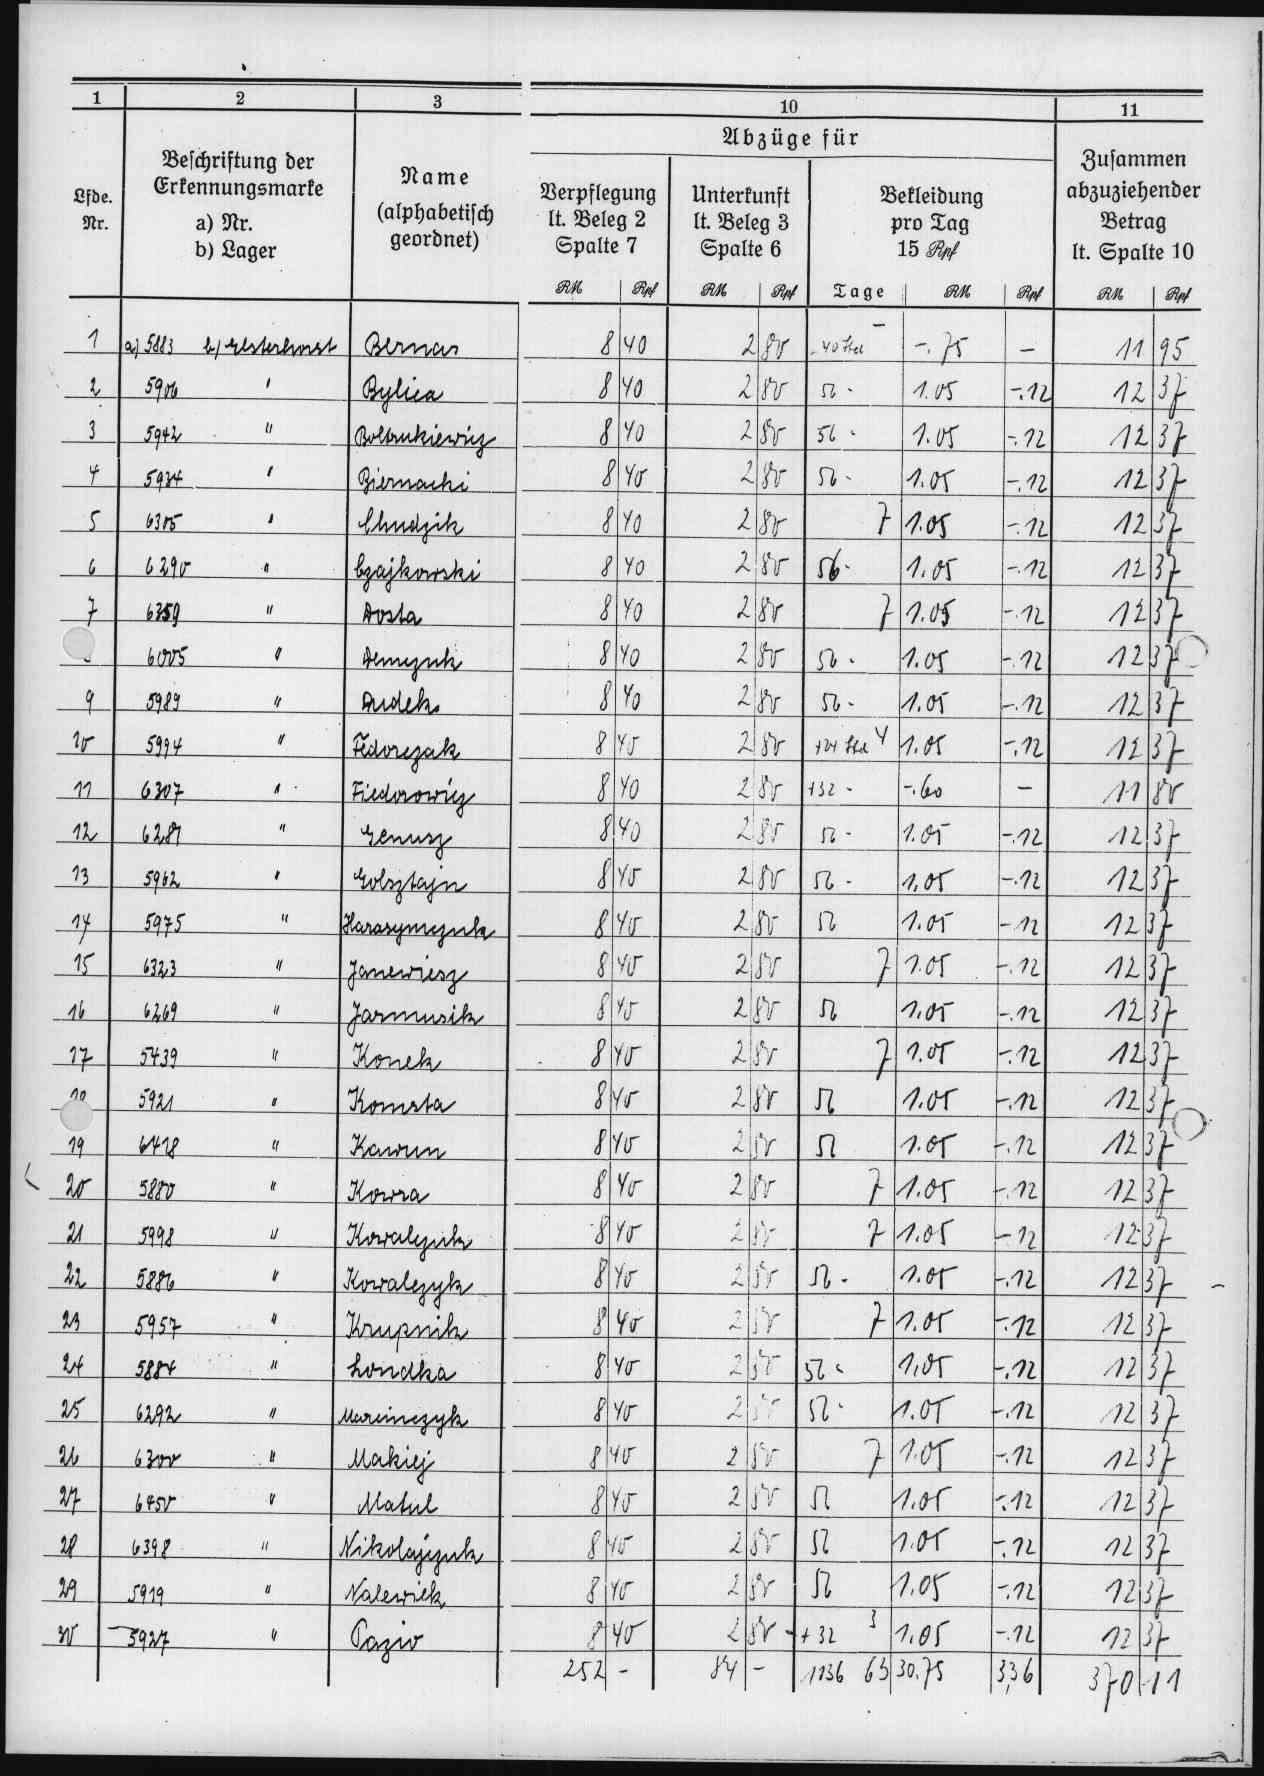 1 2 3 10 11
Abzüge für
Lfde. Nr.
Beschriftung der Erkennungsmarke
a) Nr.
b) Lager
Name
(alphabetisch geordnet)
Verpflegung lt. Beleg 2 Spalte 7
Unterkunft lt. Beleg 3 Spalte 6
Bekleidung pro Tag 15 Rpf
Zusammen abzuziehender Betrag lt. Spalte 10
RM Rpf RM Rpf Tage RM Rpf RM Rpf
1 a) 5883 b) Elsterhorst Bernas 8 40 2 80 40 Std – -.75 – 11 95
2 5906 " Bylica 8 40 2 80 56 - 1.05 -.12 12 37
3 5942 " Boltrukiewicz 8 40 2 80 56 - 1.05 -.12 12 37
4 5934 " Biernacki 8 40 2 80 56 - 1.05 -.12 12 37
5 6305 " Chudzik 8 40 2 80 7 1.05 -.12 12 37
6 6290 " Czajkowski 8 40 2 80 56 - 1.05 -.12 12 37
7 6359 " Dosta 8 40 2 80 7 1.05 -.12 12 37
6005 " Demczuk 8 40 2 80 56 - 1.05 -.12 12 37
9 5989 " Dudek 8 40 2 80 56 - 1.05 -.12 12 37
10 5994 " Fedorczak 8 40 2 80 +24 Std 4 1.05 -.12 12 37
11 6307 " Fiedorowicz 8 40 2 80 +32 - -.60 – 11 80
12 6281 " Genusz 8 40 2 80 56 - 1.05 -.12 12 37
13 5962 " Golsztajn 8 40 2 80 56 - 1.05 -.12 12 37
14 5975 " Harasymczuk 8 40 2 80 56 1.05 -.12 12 37
15 6323 " Janewicz 8 40 2 80 7 1.05 -.12 12 37
16 6269 " Jarmusik 8 40 2 80 56 1.05 -.12 12 37
17 5439 " Konek 8 40 2 80 7 1.05 -.12 12 37
18 5921 " Komsta 8 40 2 80 56 1.05 -.12 12 37
19 6418 " Kawun 8 40 2 80 56 1.05 -.12 12 37
20 5880 " Kowra 8 40 2 80 7 1.05 -.12 12 37
21 5998 " Kowalczuk 8 40 2 80 7 1.05 -.12 12 37
22 5886 " Kowalczyk 8 40 2 80 56 - 1.05 -.12 12 37
23 5957 " Krupnik 8 40 2 80 7 1.05 -.12 12 37
24 5884 " Londka 8 40 2 80 56 - 1.05 -.12 12 37
25 6292 " Marcinczyk 8 40 2 80 56 - 1.05 -.12 12 37
26 6300 " Makiej 8 40 2 80 7 1.05 -.12 12 37
27 6450 " Matul 8 40 2 80 56 1.05 -.12 12 37
28 6398 " Nikolajczuk 8 40 2 80 56 1.05 -.12 12 37
29 5919 " Nalewiek 8 40 2 80 56 1.05 -.12 12 37
30 5927 " Pazio 8 40 2 80 + 32 3 1.05 -.12 12 37
252 – 84 – 1136 63 30.75 3,36 370 11